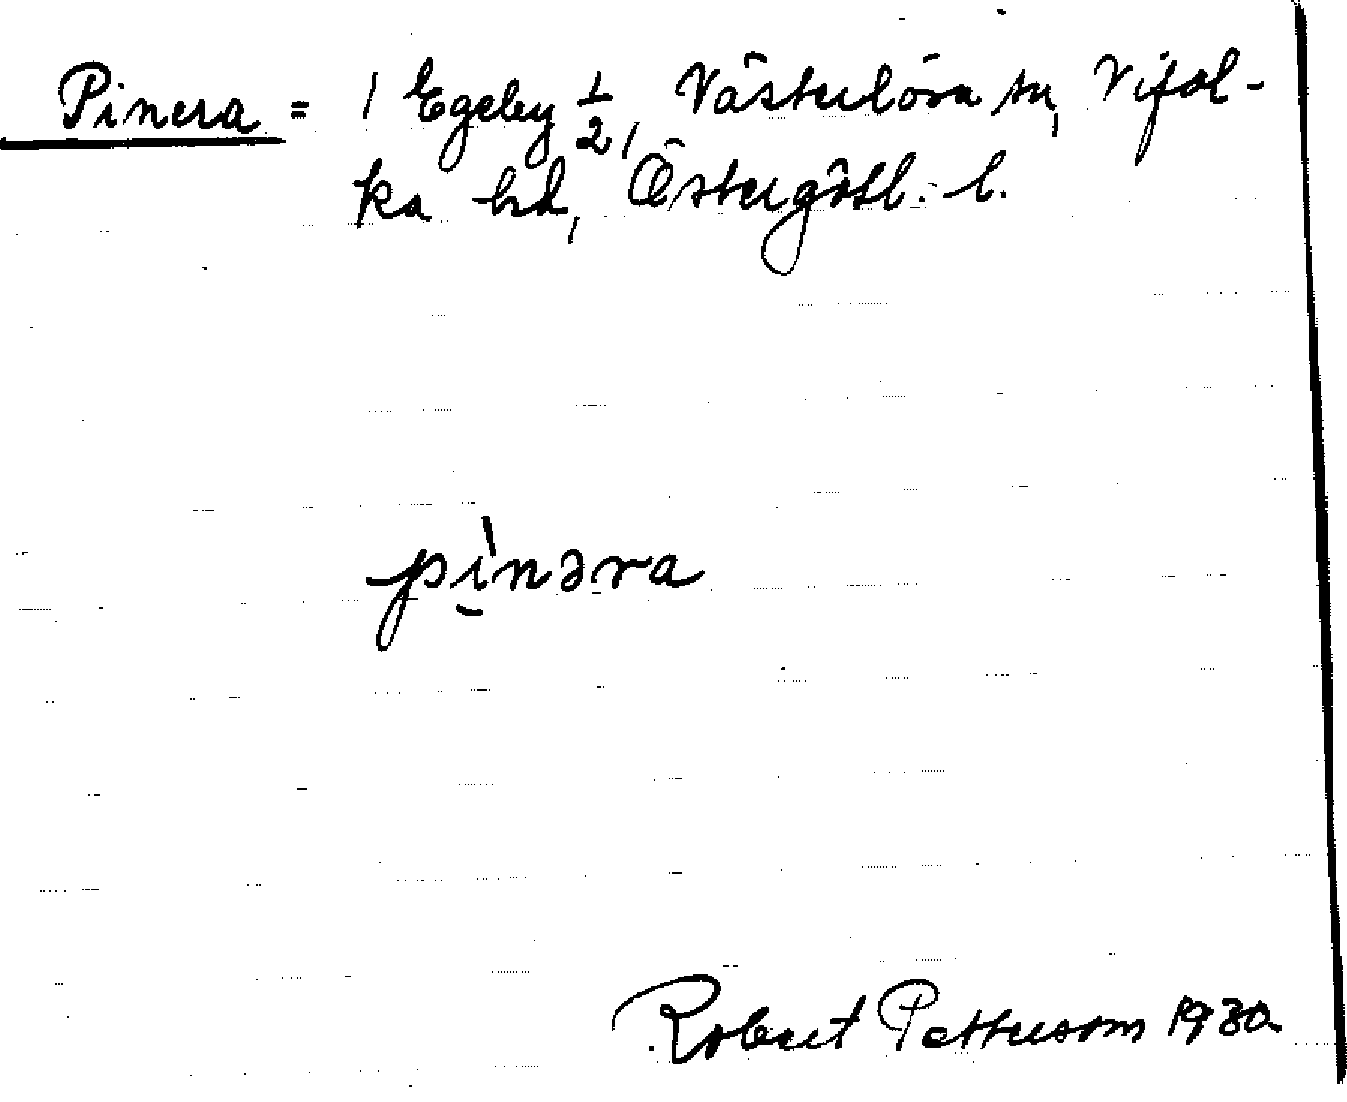 Pinera = / Egeby 1/2, Västerlösa sn, Vifol-
ka hd, Östergötl. l.
pì̠nəra
Robert Petterson 1930